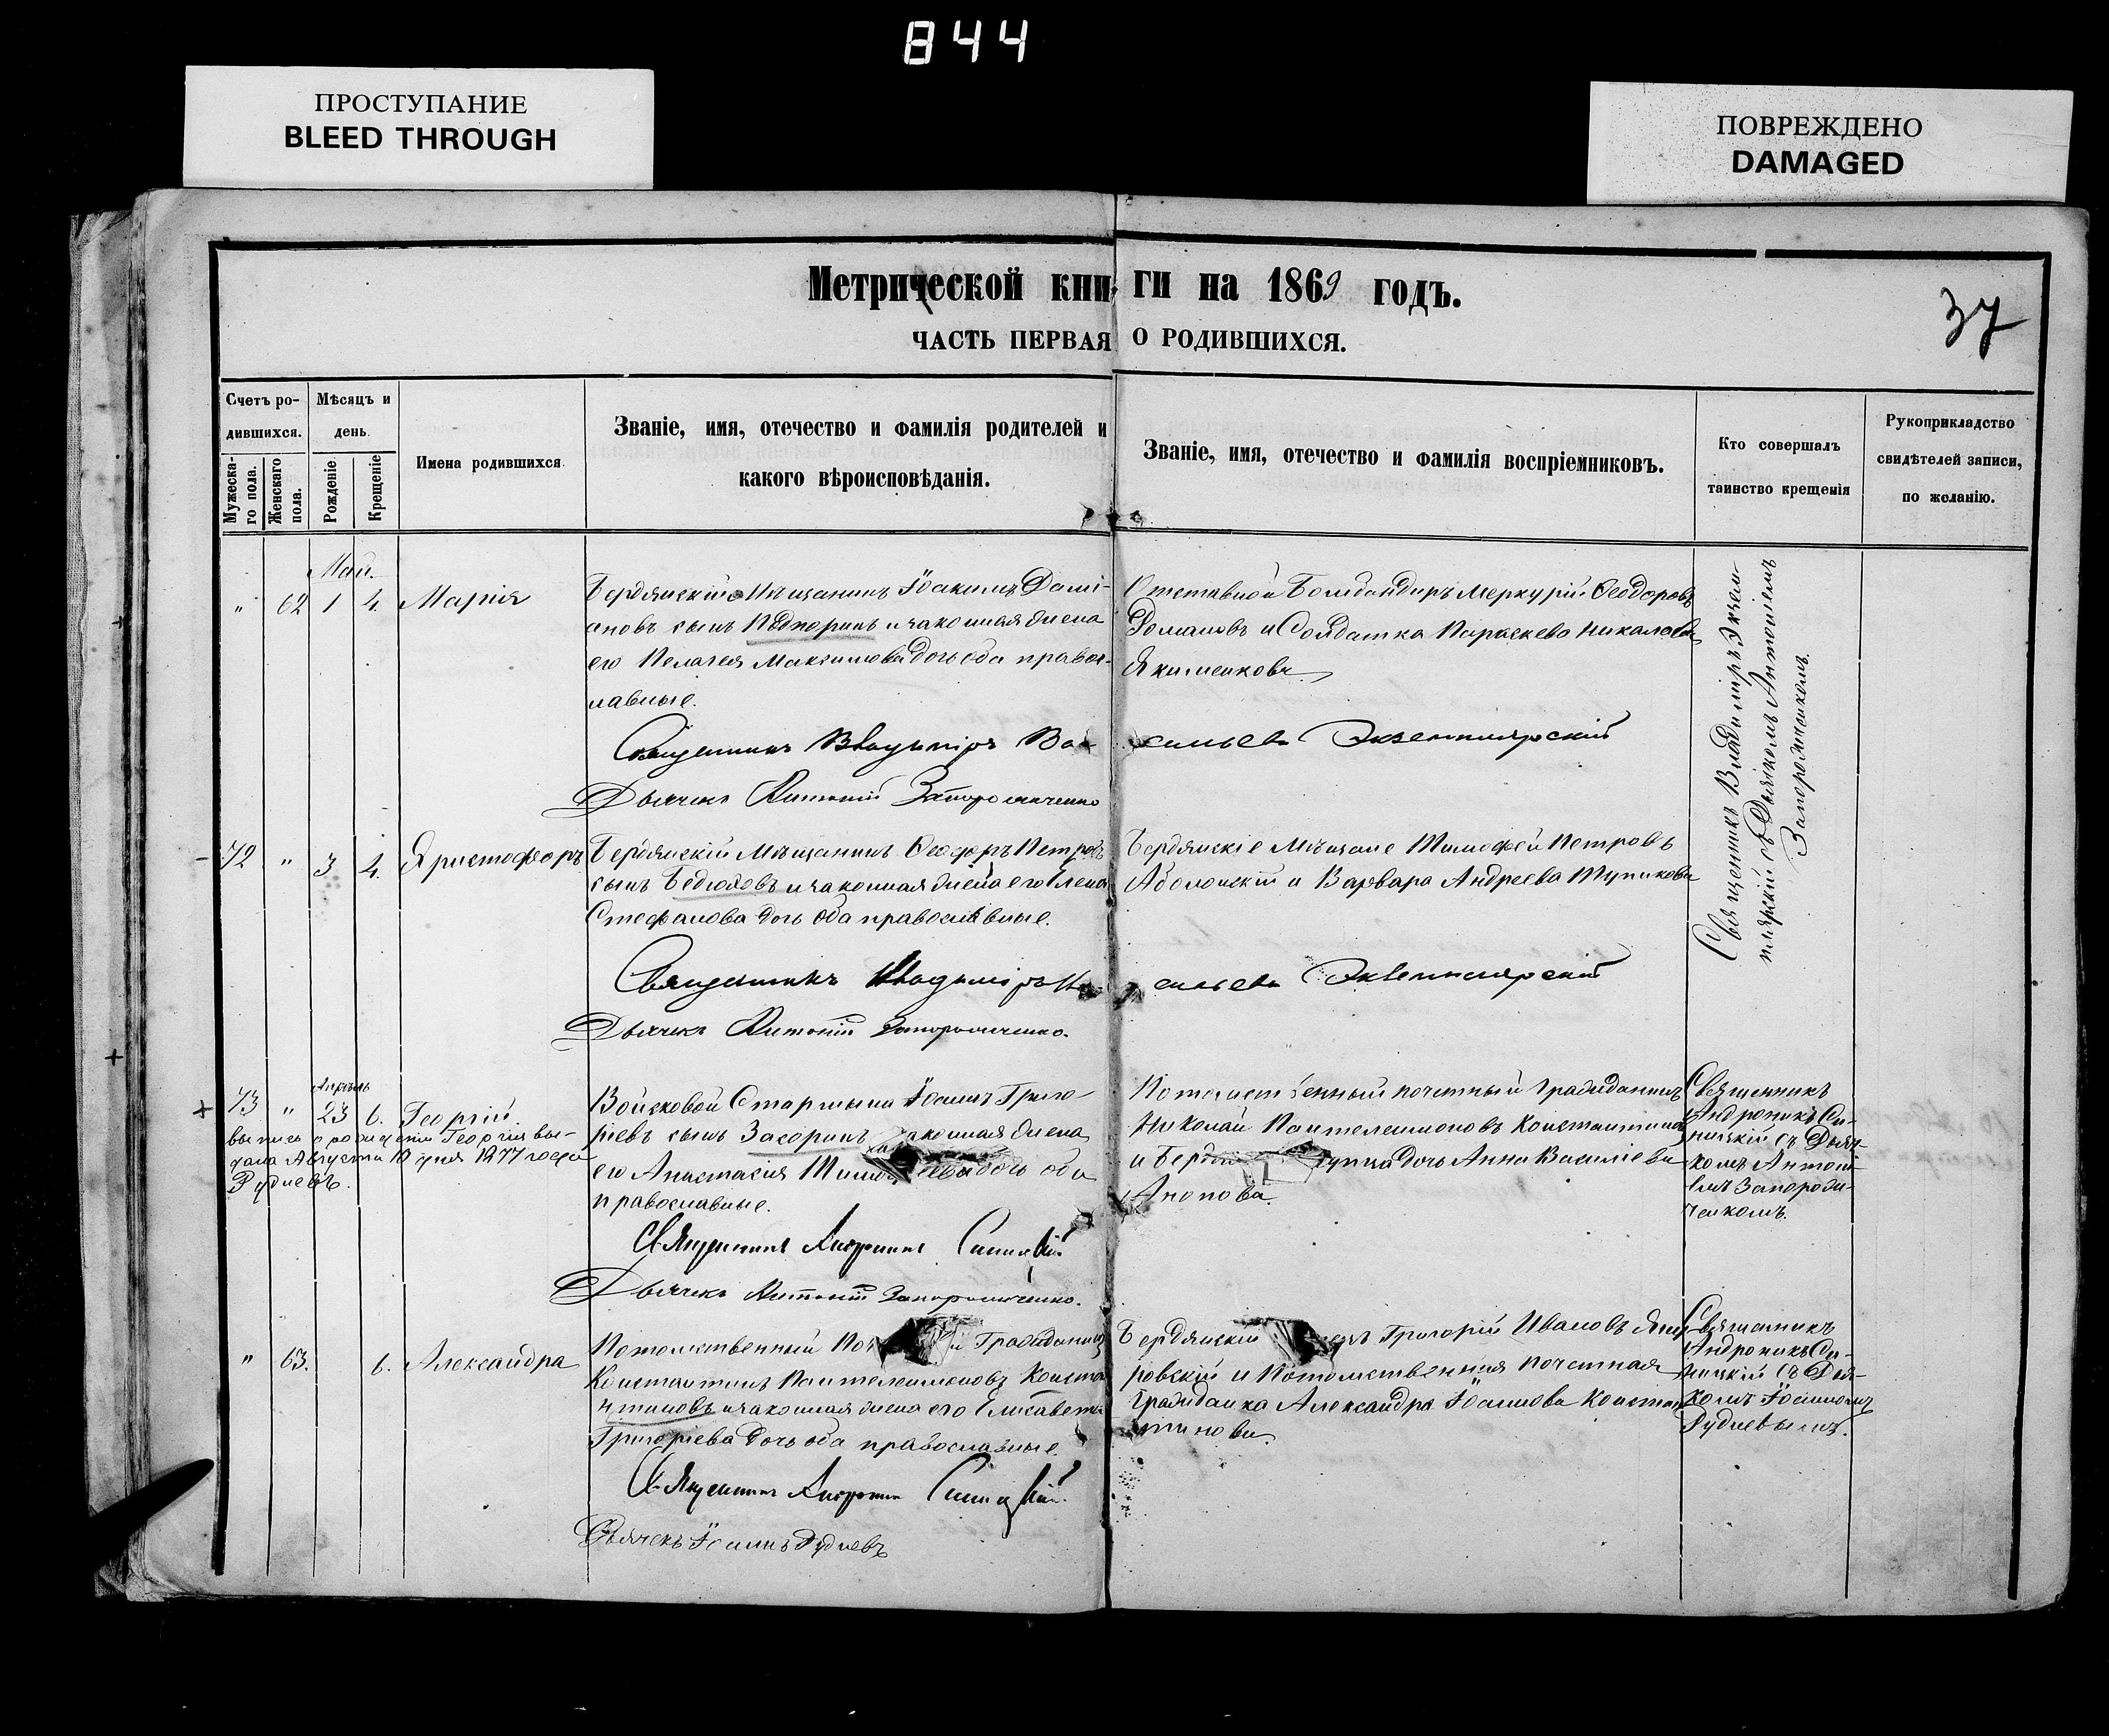 844
ПРОСТУПАНИЕ
BLEED THROUGH
ПОВРЕЖДЕНО
DAMAGED
Метрической книги на 1869 годъ.
ЧАСТЬ ПЕРВАЯ О РОДИВШИХСЯ.
37
Счетъ ро-
дившихся.
Мужеска-
го пола.
Женскаго
пола.
Мѣсяцъ и
день.
Рожденіе.
Крещеніе
Имена родившихся.
Званіе, имя, отечество и фамилія родителей и
какого вѣроисповѣданія.
Званіе, имя, отечество и фамилія воспріемниковъ.
Кто совершалъ
таинство крещенія
Рукоприкладство
свидѣтелей записи,
по желанію.
Май.
" 62 1 4. Марія
Бердянскій Мѣщанинъ Іоакимъ Дамі-
ановъ сынъ и законная жена
его Пелагея Максимова дочь оба правос-
лавные.
Отставной Бомбандиръ Меркурій Ѳеодоровъ
Романовъ и Солдатка Параскева Николаева
Якименкова
Священникъ Владиміръ Экзем-
плярскій съ Дьячкомъ Антоніемъ
Запорожченкомъ.
Священникъ Владиміръ Васильевъ Экземплярскій
Дьячекъ Антоній Запорожченко
72 " 3 4. Христофоръ
Бердянскій Мѣщанинъ Ѳеодоръ Петровъ
сынъ и законная жена его Елена
Стефанова дочь оба православные.
Бердянскіе Мѣщане Тимофей Петровъ
и Варвара Андреева Тупикова
Священникъ Владиміръ Васильевъ Экземплярскій
Дьячекъ Антоній Запорожченко.
Апрѣль
73 " 23 6. Георгій
выпись о рожденіи Георгія вы-
дана Августа 10 дня 1877 года
Рудневъ.
Войсковой Старшина Іоаннъ Григо-
ріевъ сынъ Засоринъ законная жена
его Анастасія дочь оба
православные.
Потомственный почетный Гражданинъ
Николай Пантелеимоновъ Константиновъ
и дочь Анна Василіева
Анопова.
Священникъ
Андроникъ Си-
ницкій съ Дьяч-
комъ Антоні-
емъ Запорож-
ченкомъ.
Священникъ Андроникъ Синицкій
Дьячекъ Антоній Запорожченко.
" 63. 6. Александра
Потомственный Гражданинъ
Константинъ Пантелеимоновъ Конста-
нтиновъ и законная жена его Елисавета
Григоріева дочь оба православные.
Бердянскій Григорій Ивановъ
ровскій и Потомственная почетная
Гражданка Александра Іоаннова Констан-
тинова.
Священникъ
Андроникъ Си-
ницкій съ Дья-
комъ Іоанномъ
Рудневымъ.
Священникъ Андроникъ Синицкій
Дьячекъ Іоаннъ Рудневъ